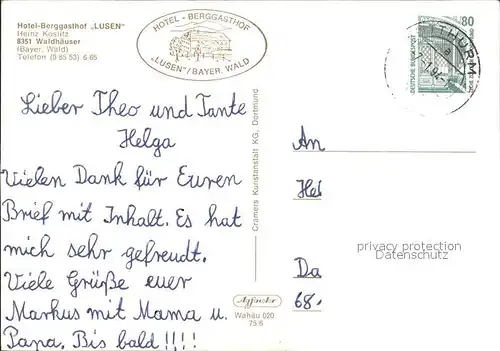 Hotel-Berggasthof „LUSEN"
Heinz Köstlitz
8351 Waldhäuser
(Bayer. Wald)
Telefon (0 85 53) 6 65
HOTEL - BERGGASTHOF
„LUSEN"/BAYER. WALD
80
DEUTSCHE BUNDESPOST
Lieber Theo und Tante
Helga
Vielen Dank für Euren
Brief mit Inhalt. Es hat
mich sehr gefreudt.
Viele Grüße euer
Markus mit Mama u.
Papa. Bis bald!!!!
Cramers Kunstanstalt KG, Dortmund
Wahäu 020
75/6
An
Hei
Da
68.
privacy protection
Datenschutz